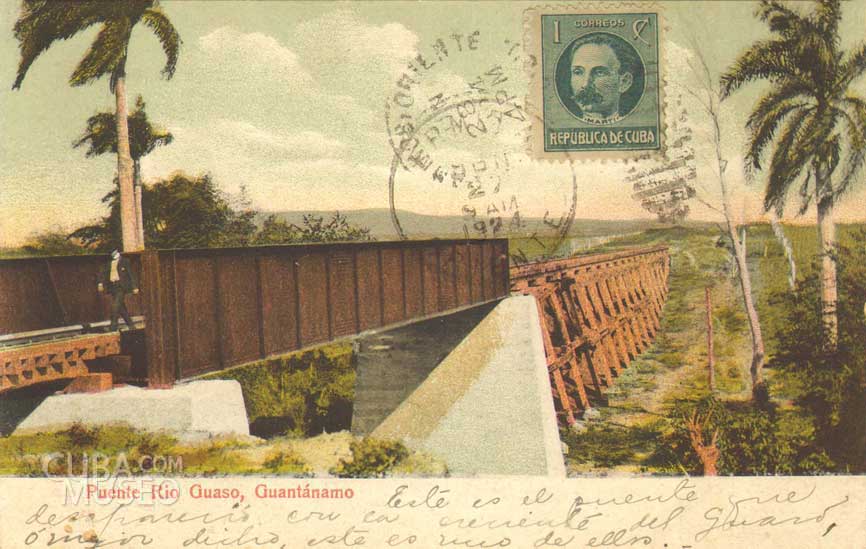 1 CORREOS ¢
MARTI
REPUBLICA DE CUBA
ORIENTE
AM
1924
CUBA.COM
MUSEO
Puente Rio Guaso, Guantánamo Este es el puente que
desaparecio con la creciente del Guaso,
o mejor dicho, este es uno de ellos.